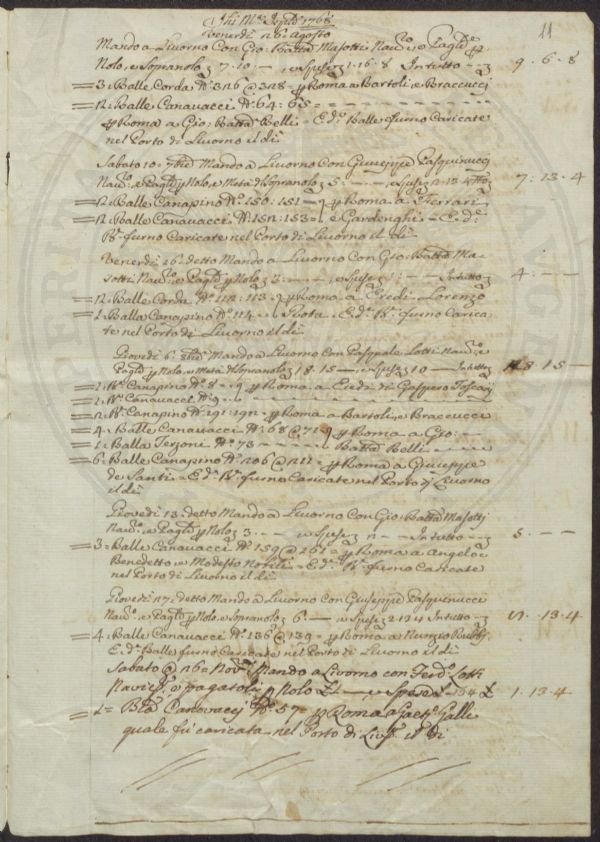 Jhs M.a Sept.e 1768
11
Venerdi 26 Agosto
Mando a Livorno Con Gio: Batta Masotti Nav.o, e Pag.to p
Nolo, e Sopranolo 7.10.— , e Spese 1.16.8 Intutto — 9.6.8
3. Balle Corda N.o 326 @ 328 = p Roma a Bartoli, e Braccucci
2. Balle Canavacci N.o 64: 65 =
p Roma a Gio: Batta Belli — E d.e Balle furno Caricate
nel Porto di Livorno il dì
Sabato 10. 7bre Mando a Livorno Con Giuseppe Pasquinucci
Nav.o, e Pag.to p Nolo, e Metà di Sopranolo 5:— , e Spese 2.13.4 7.13.4
2. Balle Canapino N.o 150: 151 — p Roma a Ferrari
2. Balle Canavacci N.o 152: 153 = e Gardenghi — E d.e
B.e furno Caricate nel Porto di Livorno il dì
Venerdi 16. detto Mando a Livorno Con Gio: Batta Ma-
sotti Nav.o, e Pag.to p Nolo 3:— , e Spese 1:— Intutto 4.—.—
2. Balle Corda N.o 112: 113 p Roma a Eredi Lorenzo
1. Balla Canapino N.o 114 E d.e B.e furno Carica
te nel Porto di Livorno il dì
Giovedi 6. 8bre Mando a Livorno Con Pasquale Lotti Nav.o, e
Pag.to p Nolo, e Metà di Sopranolo 18.15 — , e Spese 10 — Intutto 15 —
1. B.a Canapino N.o 8 p Roma a Eredi di Gaspero Toscani
1. B.a Canavacci N.o 9
2. B.e Canapino N.o 191: 192 = p Roma a Bartoli, e Braccucci
4. Balle Canavacci N.o 68 @ 71 p Roma a Gio:
1. Balla Terzoni N.o 73 Batta Belli
6. Balle Canapino N.o 206 @ 211 — p Roma a Giuseppe
de Santi — E d.e B.e furno Caricate nel Porto di Livorno
il dì
Giovedi 13. detto Mando a Livorno Con Gio: Batta Masotti
Nav.o, e Pag.to p Nolo 3.— , e Spese 2 — Intutto — 5.—.—
3. Balle Canavacci N.o 159 @ 261 = p Roma a Angelo
Benedetto, e Modesto Nobili — E d.e B.e furno Caricate
nel Porto di Livorno il dì
Giovedi 27. detto Mando a Livorno Con Giuseppe Pasquinucci
Nav.o, e Pag.to p Nolo, e Sopranolo 6:— , e Spese 2.13.4 Intutto 13.4
4. Balle Canavacci N.o 136 @ 139 = p Roma a Nunzio
E d.e Balle furno Caricate nel Porto di Livorno il dì
Sabato @ 26 Nov.e Mando a Livorno con Ferd.o Lotti
Navic.o e pagatoli p Nolo £ 1 — e Spese £ 13.4 £ 1.13.4
1 = B.la Canovacci N.o 57 = p Roma a Gaet.o Galli
quale fù caricata nel Porto di Liv.o il Dì